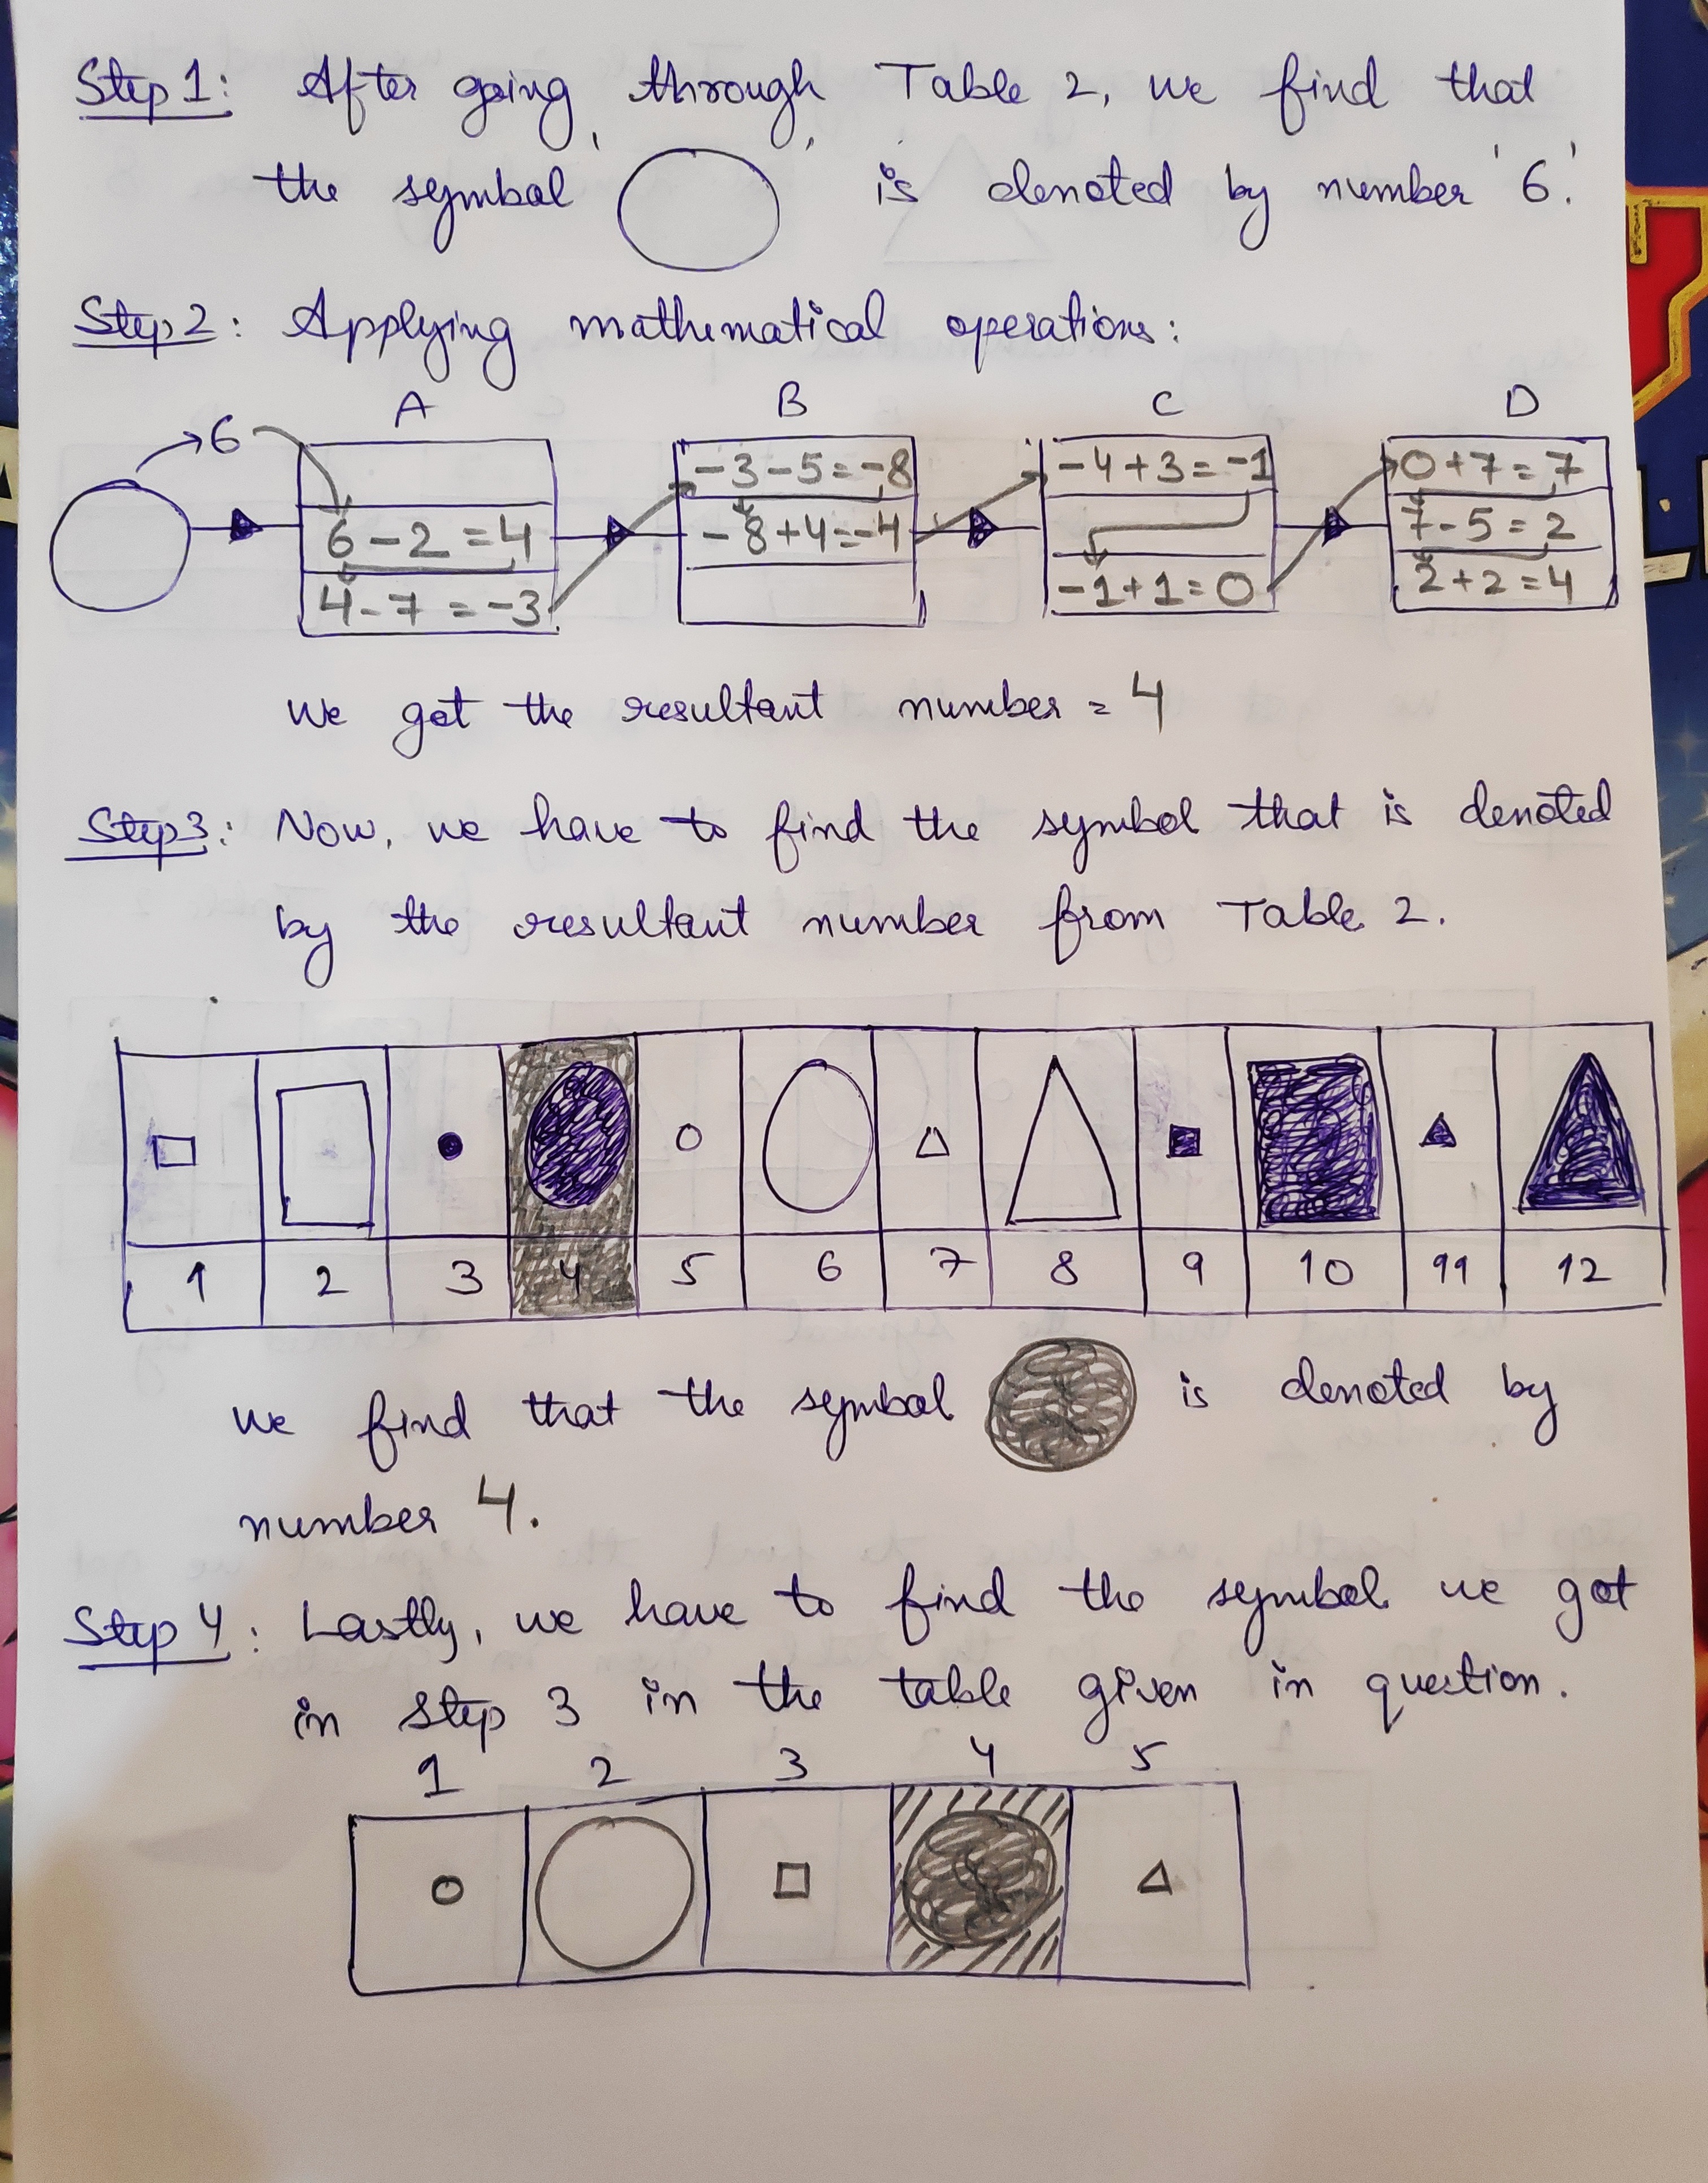 Step 1: After going through Table 2, we find that
the symbol ' ' is denoted by number '6'.
Step 2: Applying mathematical operations:
A B C D
6
-3-5=-8 -4+3=-1 0+7=7
6-2=4 -8+4=-4 7-5=2
4-7=-3 -1+1=0 2+2=4
we got the resultant number = 4
Step 3: Now, we have to find the symbol that is denoted
by the resultant number from Table 2.
1 2 3 4 5 6 7 8 9 10 11 12
we find that the symbol is denoted by
number 4.
Step 4: Lastly, we have to find the symbol we got
in step 3 in the table given in question.
1 2 3 4 5